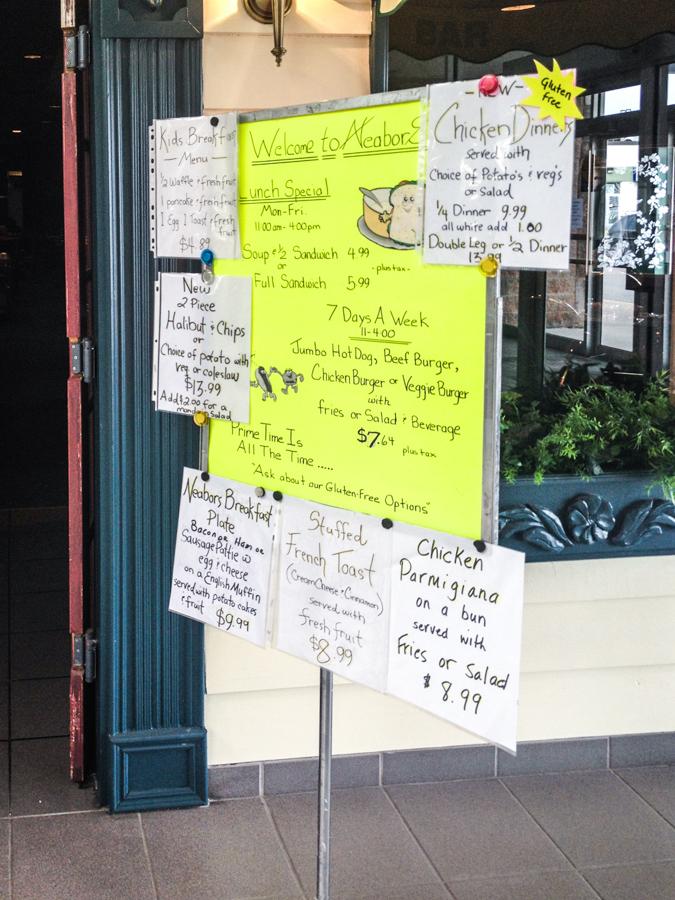 BAR
Kids Breakfast
Menu
1/2 Waffle & fresh fruit
1 pancake & fresh fruit
1 Egg 1 Toast & fresh
fruit
$4.89
Welcome to Neabors
Lunch Special
Mon-Fri.
11:00 am - 4:00pm
Soup & 1/2 Sandwich 4.99
or
- plus tax -
Full Sandwich 5.99
7 Days A Week
11-4:00
Jumbo Hot Dog, Beef Burger,
Chicken Burger or Veggie Burger
with
fries or Salad & Beverage
$7.64 plus tax
Prime Time Is
All The Time .....
"Ask about our Gluten-Free Options"
-NEW-
Gluten
free
Chicken Dinners
served with
Choice of Potato's & veg's
or Salad
1/4 Dinner 9.99
all white add 1.00
Double Leg or 1/2 Dinner
13.99
New
2 Piece
Halibut & Chips
or
Choice of potato with
veg or coleslaw
$13.99
Add $2.00 for a
salad
Neabors Breakfast
Plate
Bacon or Ham or
Sausage Pattie w
egg & cheese
on a English Muffin
served with potato cakes
& fruit $9.99
Stuffed
French Toast
(Cream Cheese & Cinnamon)
served with
fresh fruit
$8.99
Chicken
Parmigiana
on a bun
served with
Fries or Salad
$8.99